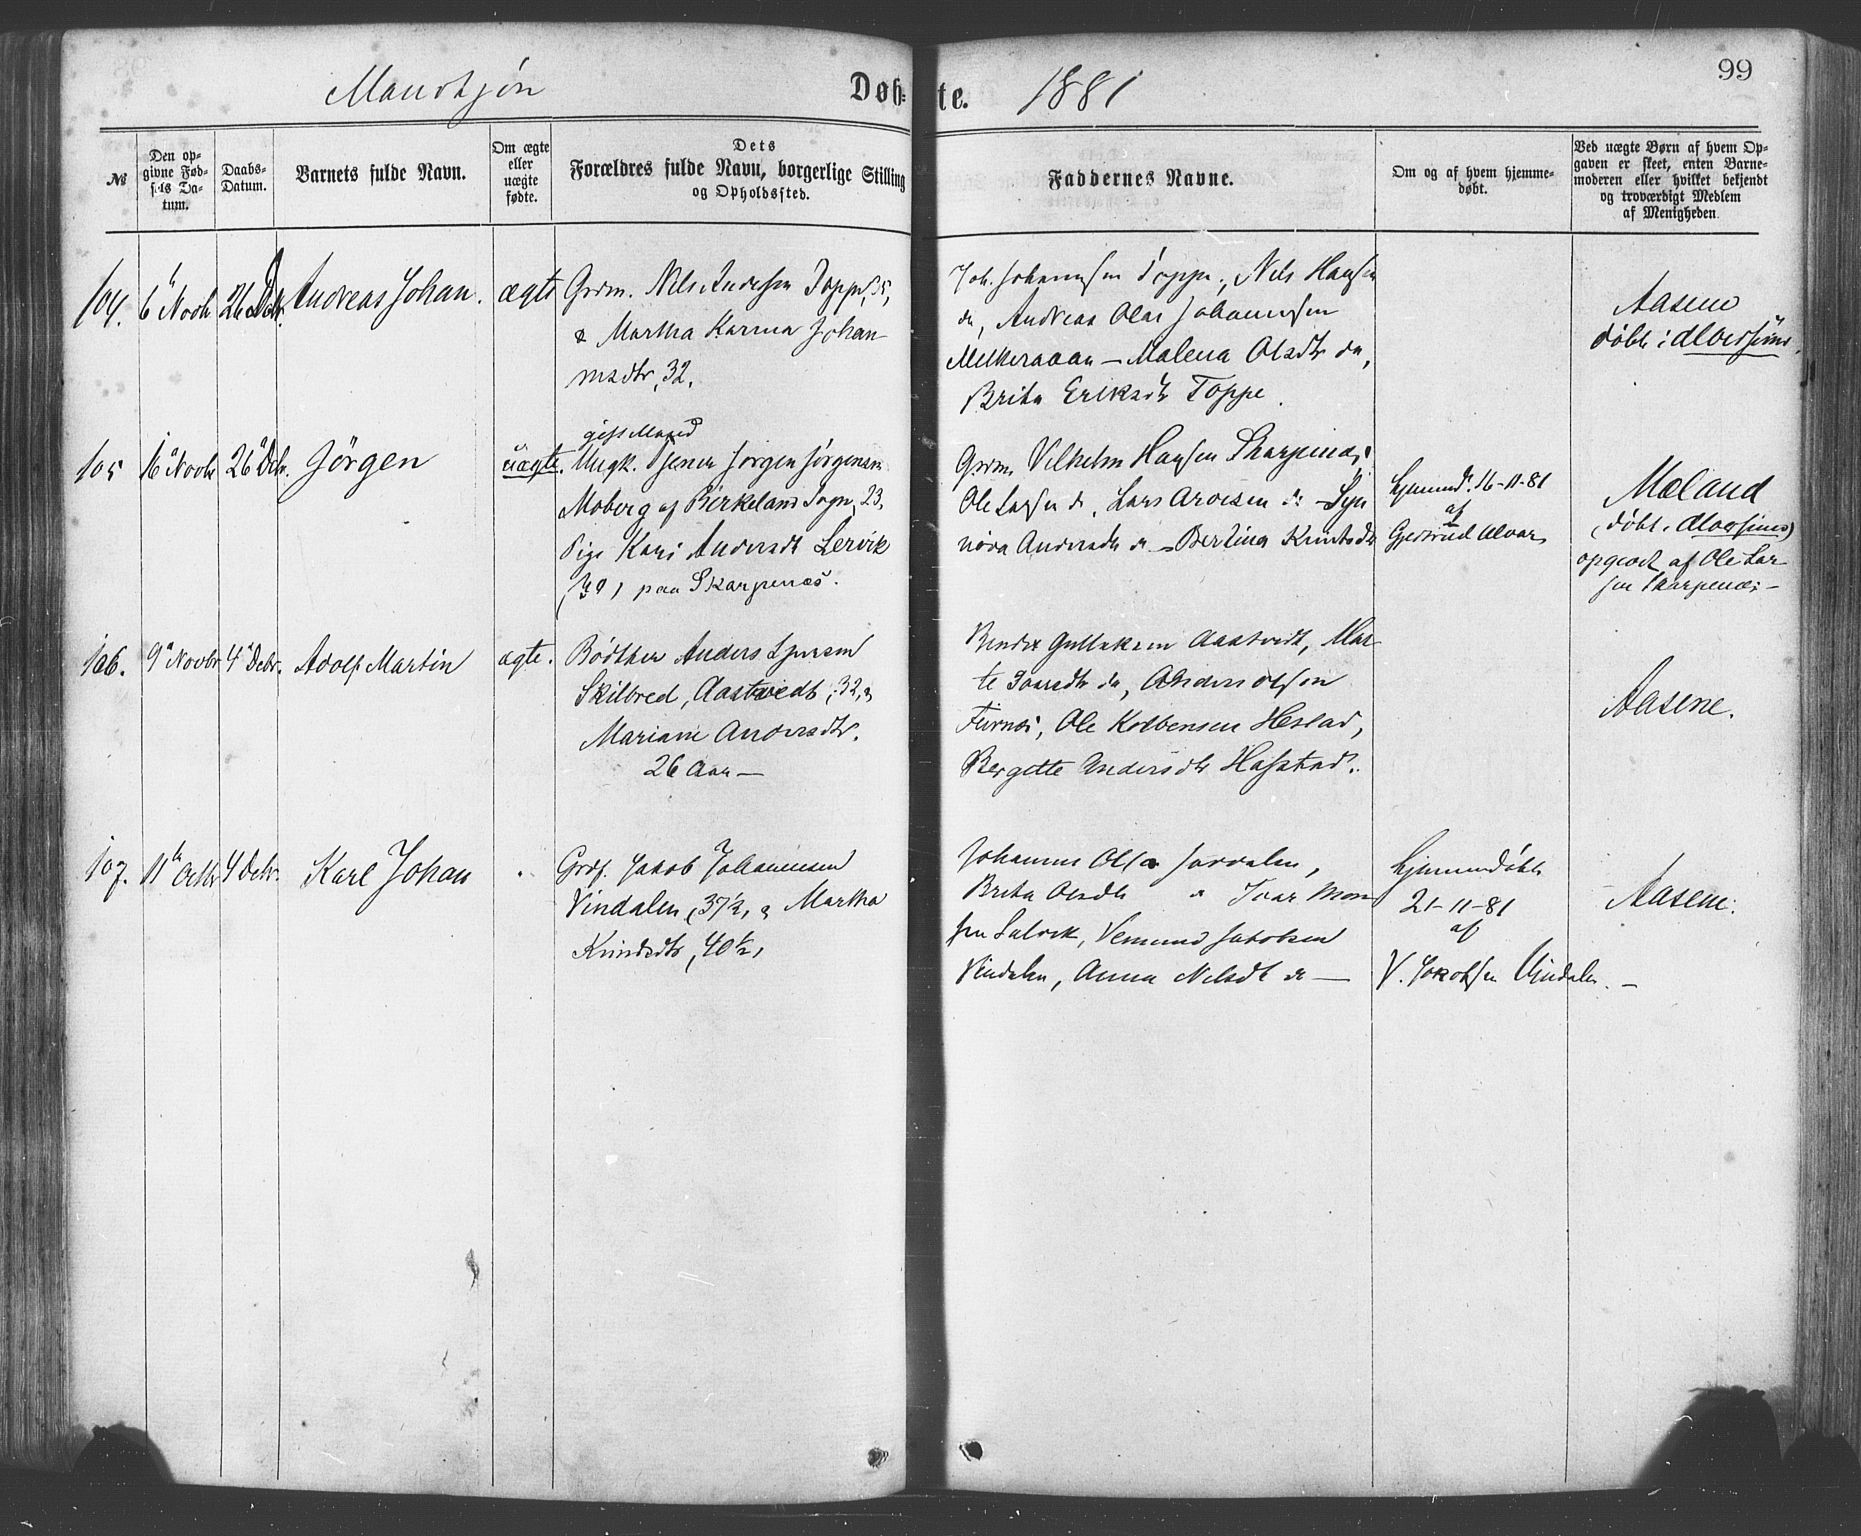 Mandkjøn Døb- te. 1881 99
№
Den op-
givne Fød-
sels Da-
tum.
Daabs-
Datum.
Barnets fulde Navn.
Om ægte
eller
uægte
fødte.
Dets
Forældres fulde Navn, borgerlige Stilling
og Opholdssted.
Faddernes Navne.
Om og af hvem hjemme-
døbt.
Ved uægte Børn af hvem Op-
gaven er skeet, enten Barne-
moderen eller hvilket bekjendt
og troværdigt Medlem
af Menigheden.
104. 6 Novbr 26 Debr. Andreas Johan. ægte Grdm. Nils Andersen Toppe, 35,
& Martha Karina Johan
nesdtr, 32.
Joh. Johannesen Toppe, Nils Hansen
do, Andreas Olai Johannesen
Melkeraaen – Malena Olsdtr do,
Brita Eriksdtr Toppe.
Aasene
døbt i Alversund.
105 16 Novbr 26 Debr. Jörgen uægte.
gift Mand
Ungk. Tjener Jørgen Jørgensen
Moberg af Birkeland Sogn, 23,
Pige Kari Andersdt Lervik
(30) paa Skarpenæs.
Grdm. Vilhelm Hansen Skarpenæs
Ole Larsen do, Lars Arvesen do – Syn
növa Andersdtr do – Bertina Knutsdtr
hjemmd. 16-11-81
af
Gjertrud Alver
Mæland
(døbt i Alversund)
opgivet af Ole Lar
sen Skarpenæs –
106. 9 Novbr 4 Debr. Adolf Martin ægte. Bødtker Anders
Skilbred, Aastvedt, 32, &
Mariane Andersdtr.
26 Aar –
Aastvedt, Mar
te Ivarsdtr do, Anders Olsen
Furnes, Ole Kolbensen Heslad,
Bergitte Andersdtr Hasstad.
Aasene.
107. 11te Octbr 4 Debr. Karl Johan " Grdf. Jakob Johannesen
Vindalen, (37½, & Martha
Knudsdtr, 40½,
Johannes Olsen Jordalen,
Brita Olsdtr " Ivar Mon
sen Salvik, Vemund Jakobsen
Vindalen, Anna Nilsdt do –
hjemmedøbt
21-11-81
af
V. Jakobsen Vindalen. –
Aasene.